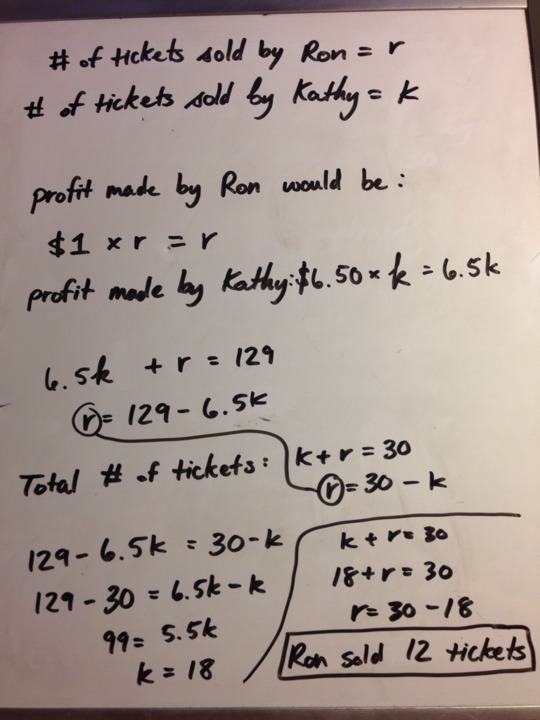 # of tickets sold by Ron = r
# of tickets sold by Kathy = k
profit made by Ron would be :
$1 × r = r
profit made by Kathy: $6.50 × k = 6.5k
6.5k + r = 129
r = 129 - 6.5k
Total # of tickets: k + r = 30
r = 30 - k
129 - 6.5k = 30 - k
129 - 30 = 6.5k - k
99 = 5.5k
k = 18
k + r = 30
18 + r = 30
r = 30 - 18
Ron sold 12 tickets